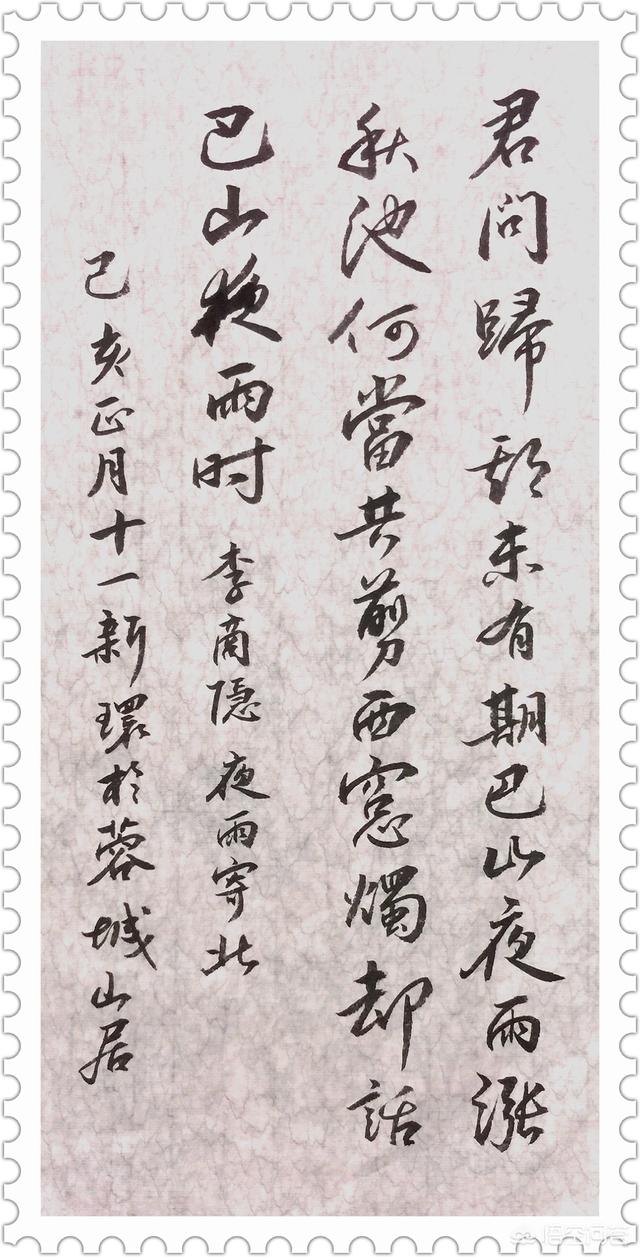 君問歸期未有期巴山夜雨漲
秋池何當共剪西窓燭却話
巴山夜雨时 李商隐夜雨寄北
己亥正月十一新環於蓉城山居
悟空问答